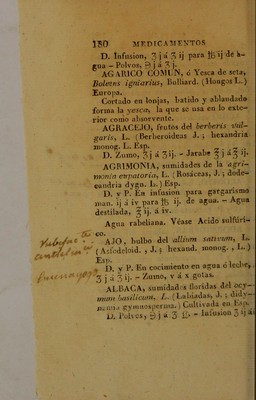 180 MEDICAMENTOS
D. Infusion, ʒ j á ℥ ij para ℔ ij de a-
gua – Polvos, ℈ j á ℥ j.
AGARICO COMUN, ó Yesca de seta,
Boletus igniarius, Bulliard. (Hongos L.)
Europa.
Cortado en lonjas, batido y ablandado
forma la yesca, la que se usa en lo exte-
rior como absorvente.
AGRACEJO, frutos del berberis vul-
garis, L. (Berberoideas J. ; hexandria
monog. L. Esp.
D. Zumo, ʒ j á ʒ ij. - Jarabe ℥ j á ℥ ij.
AGRIMONIA, sumidades de la agri-
monia eupatoria, L. (Rosáceas, J. ; dode-
candria dygn. L.) Esp.
D. y P. En infusion para gargarismo
man. ij á iv para ℔ ij. de agua. – Agua
destilada, ℥ ij. á iv.
Agua rabeliana. Véase Acido sulfúri-
co.
AJO, bulbo del allium sativum, L.
(Asfodeloid. , J. ; hexand. monog. , L.)
Esp.
D. y P. En cocimiento en agua ó leche,
ʒ j á ʒ ij. – Zumo, v á x gotas.
ALBACA, sumidades floridas del ocy-
mum basilicum, L. (Labiadas, J. ; didy-
namia gymnosperma.) Cultivada en Esp.
D. Polvos, ℈ j á ʒ ß. – Infusion ʒ ij á